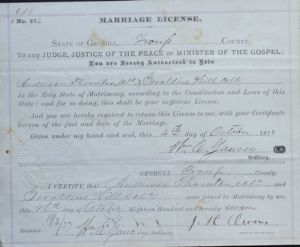 MARRIAGE LICENSE.
STATE OF GEORGIA, Troup COUNTY.
To any JUDGE, JUSTICE OF THE PEACE or MINISTER OF THE GOSPEL:
You are Hereby Authorized to Join
Anderson Thornton col & Geraldine Hill col
In the Holy State of Matrimony, according to the Constitution and Laws of this
State; and for so doing, this shall be your sufficient License.
And you are hereby required to return this License to me, with your Certificate
hereon of the fact and date of the Marriage.
Given under my hand and seal, this 4th day of October 1877
Wm A. Yancey
Ordinary.
GEORGIA, Troup COUNTY.
I CERTIFY, that Anderson Thornton, col. and
Geraldine Hill, col were joined in Matrimony by me, this
day of October Eighteen Hundred and seventy seven
Recorded J. R. Owens